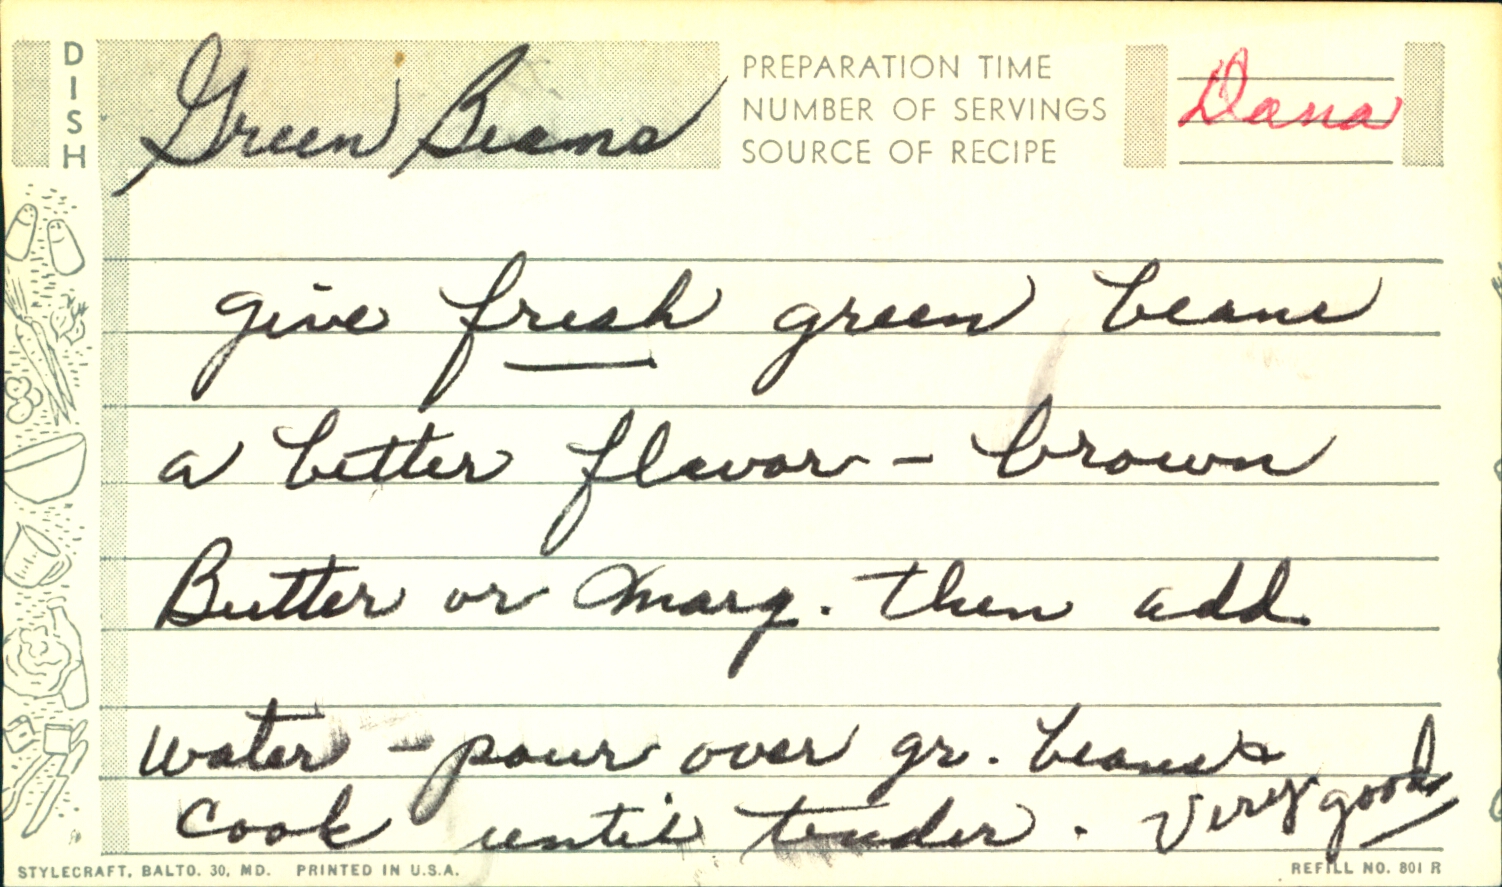 DISH
Green Beans
PREPARATION TIME
NUMBER OF SERVINGS
SOURCE OF RECIPE
Dana
give fresh green beans
a better flavor - brown
Butter or marg. then add
water - pour over gr. beans &
cook until tender. Very good
STYLECRAFT, BALTO. 30, MD. PRINTED IN U.S.A.
REFILL NO. 801 R